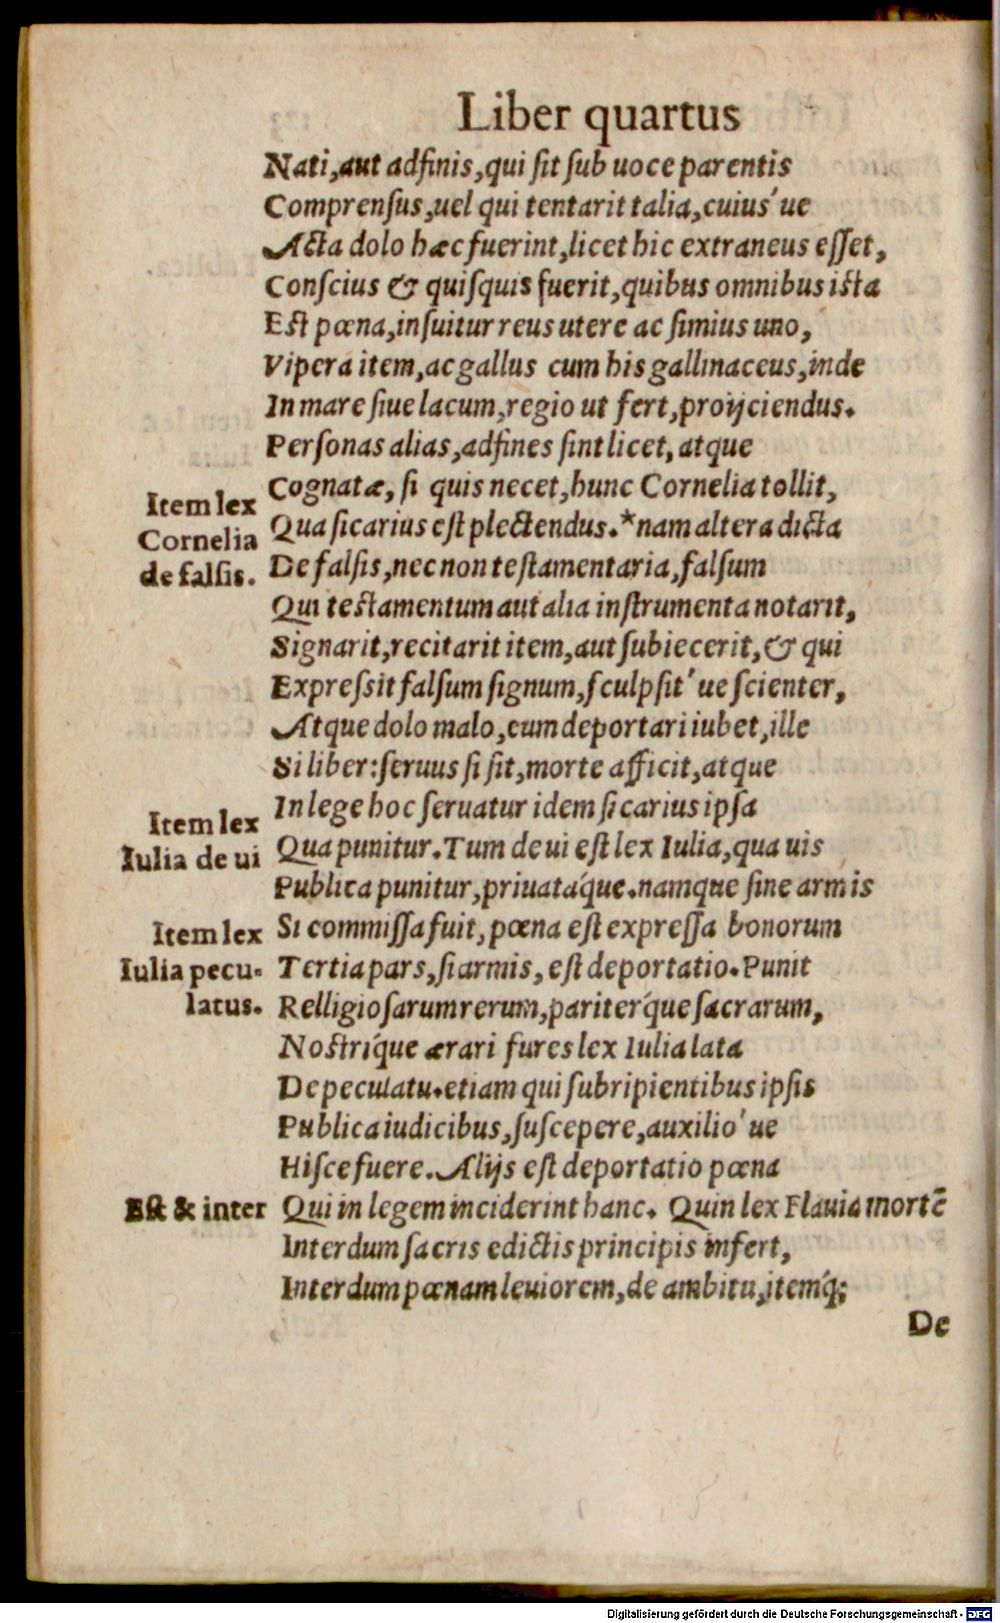 Liber quartus
Nati, aut adfinis, qui ſit ſub uoce parentis
Comprenſus, uel qui tentarit talia, cuius´ue
Acta dolo hæc fuerint, licet hic extraneus eſſet,
Conſcius & quiſquis fuerit, quibus omnibus iſta
Eſt pœna, inſuitur reus utere ac ſimius uno,
Vipera item, ac gallus cum his gallinaceus, inde
In mare ſiue lacum, regio ut fert, proijciendus.
Perſonas alias, adfines ſint licet, atque
Cognatæ, ſi quis necet, hunc Cornelia tollit,
Item lex
Cornelia
de falſis.
Qua ſicarius eſt plectendus.*nam altera dicta
De falſis, nec non teſtamentaria, falſum
Qui teſtamentum aut alia inſtrumenta notarit,
Signarit, recitarit item, aut ſubiecerit, & qui
Expreſsit falſum ſignum, ſculpſit´ue ſcienter,
Atque dolo malo, eum deportari iubet, ille
Si liber: ſeruus ſi ſit, morte afficit, atque
In lege hoc ſeruatur idem ſicarius ipſa
Item lex
Iulia de ui
Qua punitur. Tum de ui eſt lex Iulia, qua uis
Publica punitur, priuatáque. namque ſine armis
Si commiſſa fuit, pœna eſt expreſſa bonorum
Item lex
Iulia pecu-
latus.
Tertia pars, ſi armis, eſt deportatio. Punit
Relligioſarum rerum, pariterq́ue ſacrarum,
Noſtriq́ue ærari fures lex Iulia lata
De peculatu. etiam qui ſubripientibus ipſis
Publica iudicibus, ſuſcepere, auxilio´ue
Hiſce fuere. Alijs eſt deportatio pœna
Eſt & inter
Qui in legem inciderint hanc. Quin lex Flauia mortē
Interdum ſacris edictis principis infert,
Interdum pœnam leuiorem, de ambitu, itemq́;
De
Digitalisierung gefördert durch die Deutsche Forschungsgemeinschaft - DFG